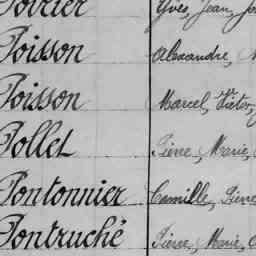 Poirier Yves, Jean, Jo
Poisson Alexandre, M
Poisson Marcel, Victor,
Pollet Pierre, Marie,
Pontonnier Camille, Pierre
Pontruché Pierre, Marie,